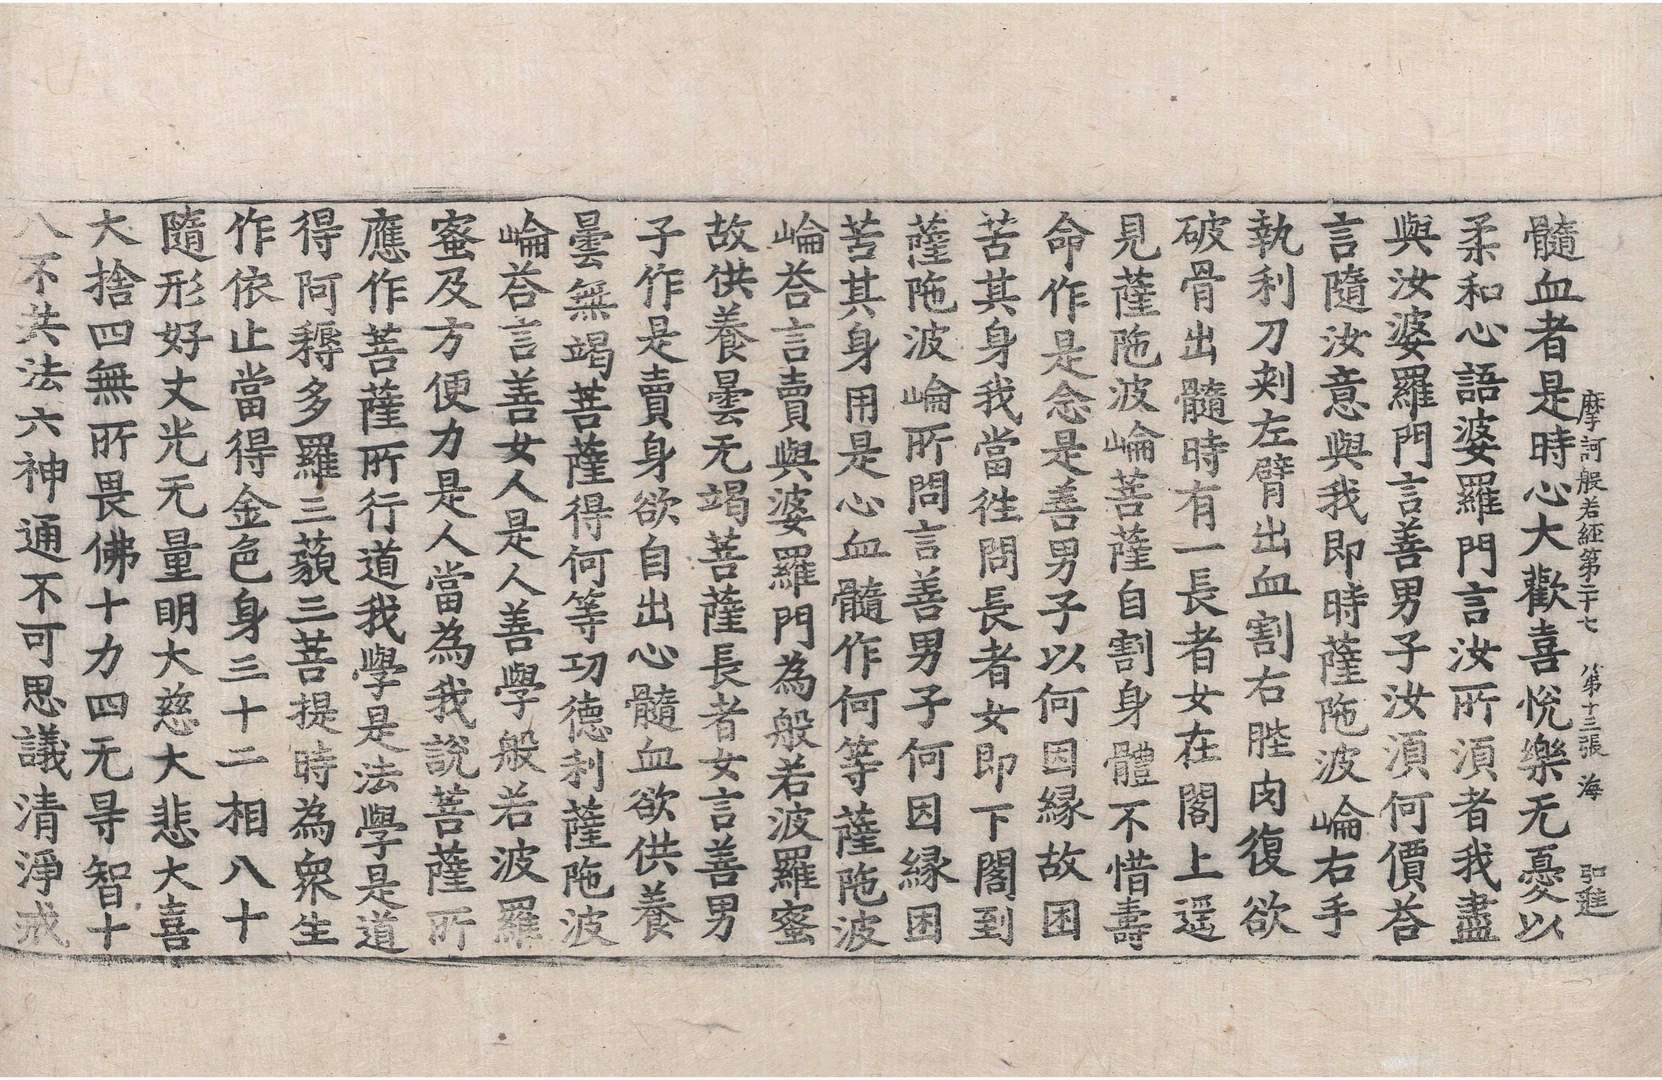 摩訶般若經第二十七　第十三張　海
髓血者是時心大歡喜悅樂无憂以
柔和心語婆羅門言汝所湏者我盡
與汝婆羅門言善男子汝湏何價荅
言隨汝意與我即時薩陁波崘右手
執利刀刾左臂出血割右䏶肉復欲
破骨出髓時有一長者女在閣上遥
見薩陁波崘菩薩自割身體不惜壽
命作是念是善男子以何因緣故困
苦其身我當徃問長者女即下閣到
薩陁波崘所問言善男子何因緣困
苦其身用是心血髓作何等薩陁波
崘荅言賣與婆羅門為般若波羅蜜
故供養曇无竭菩薩長者女言善男
子作是賣身欲自出心髓血欲供養
曇無竭菩薩得何等功德利薩陁波
崘荅言善女人是人善學般若波羅
蜜及方便力是人當為我說菩薩所
應作菩薩所行道我學是法學是道
得阿耨多羅三藐三菩提時為衆生
作依止當得金色身三十二相八十
隨形好丈光无量明大慈大悲大喜
大捨四無所畏佛十力四无㝵智十
八不共法六神通不可思議清淨戒